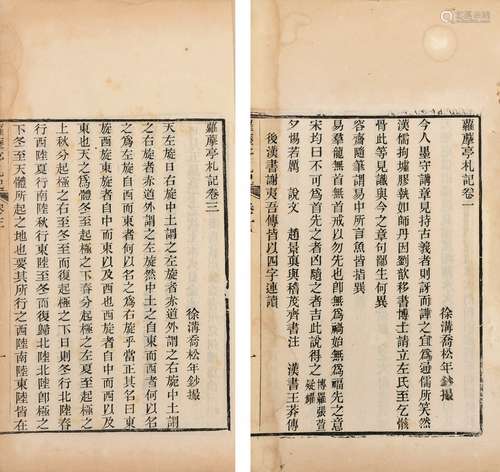 蘿藦亭札記卷一
徐溝喬松年鈔撮
今人墨守講章見持古義者則訝而譁之宜為通儒所笑然
漢儒拘墟膠執如師丹因劉歆移書博士請立左氏至乞骸
骨此等見識與今之章句鄙生何異
容齋隨筆謂易中所言魚皆指巽
易羣龍无首无首戒以勿先也卽無為禍始無為福先之意
宋均曰不可為首先之者凶隨之者吉此說得之
夕惕若厲 說文 趙景真與嵇茂齊書注 漢書王莽傳
後漢書謝夷吾傳皆以四字連讀
蘿藦亭札記卷三
徐溝喬松年鈔撮
天左旋日右旋中土謂之左旋者赤道外謂之右旋中土謂
之右旋者赤道外謂之左旋然中土之自東而西者何以名
之為左旋自西而東者何以名之為右旋乎當正其名曰東
旋西旋東旋者自中而東以及于西也西旋者自中而西以及
東也天之為體冬至起極之下春分起極之左夏至起極之
上秋分起極之右至冬至而復起極之下日則冬行北陸春
行西陸夏行南陸秋行東陸至冬而復歸北陸北陸卽極之
下冬至天體所起之地也要其所行之西陸南陸東陸皆在